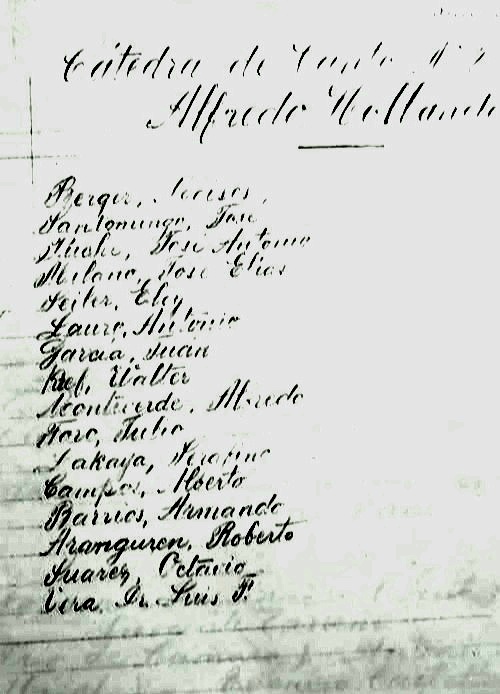 Cátedra de Canto Nº
Alfredo Hollande
Berger, Narciso,
Santomingo, José
José Antonio
Milano, José Elias
Seiler, Eloy
Lauro, Antonio
García, Juan
Kuf, Walter
Monteverde, Alfredo
Toro, Julio
Sakaya, Serafino
Campos, Alberto
Barrios, Armando
Aranguren, Roberto
Suarez, Octavio
Vera, Dr. Luis F.